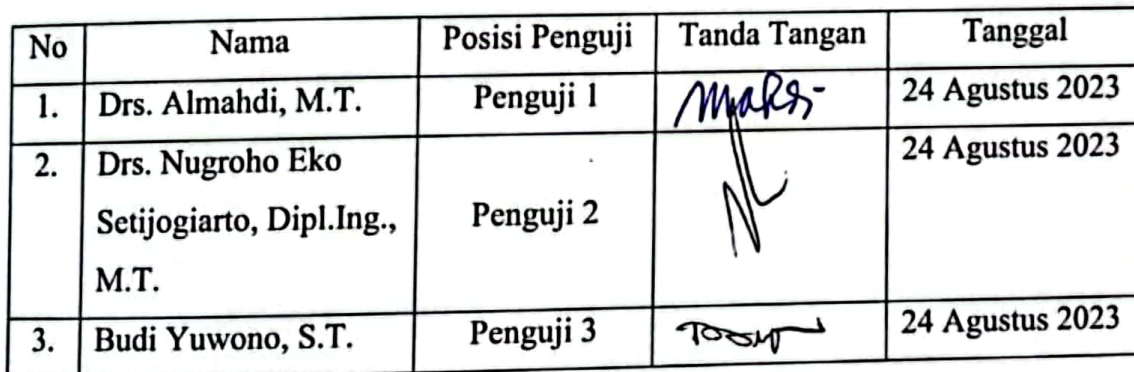 No Nama Posisi Penguji Tanda Tangan Tanggal
1. Drs. Almahdi, M.T. Penguji 1 24 Agustus 2023
2. Drs. Nugroho Eko 24 Agustus 2023
Setijogiarto, Dipl.Ing., Penguji 2
M.T.
3. Budi Yuwono, S.T. Penguji 3 24 Agustus 2023